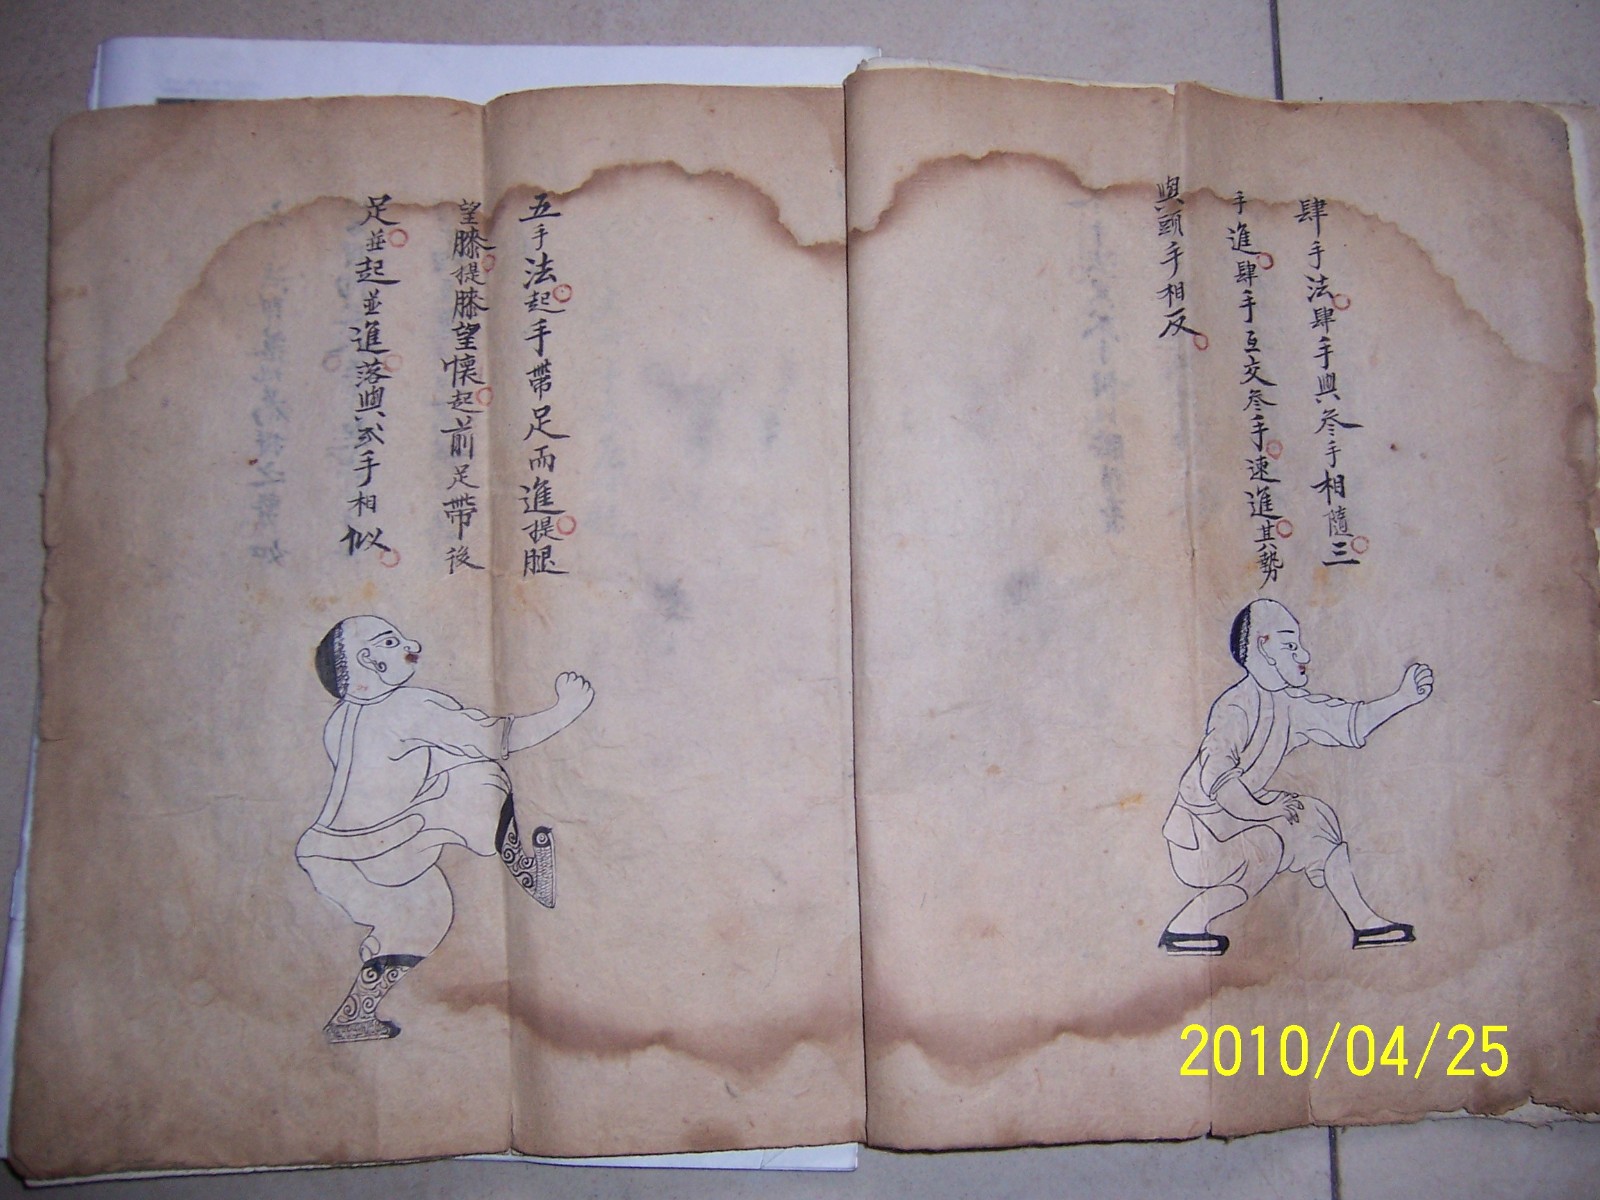 肆手法肆手與叅手相隨三
手進肆手互交叅手速進其勢
與頭手相反
五手法起手帶足而進提腿
望膝提膝望懷起前足帶後
足並起並進落與弍手相似
2010/04/25